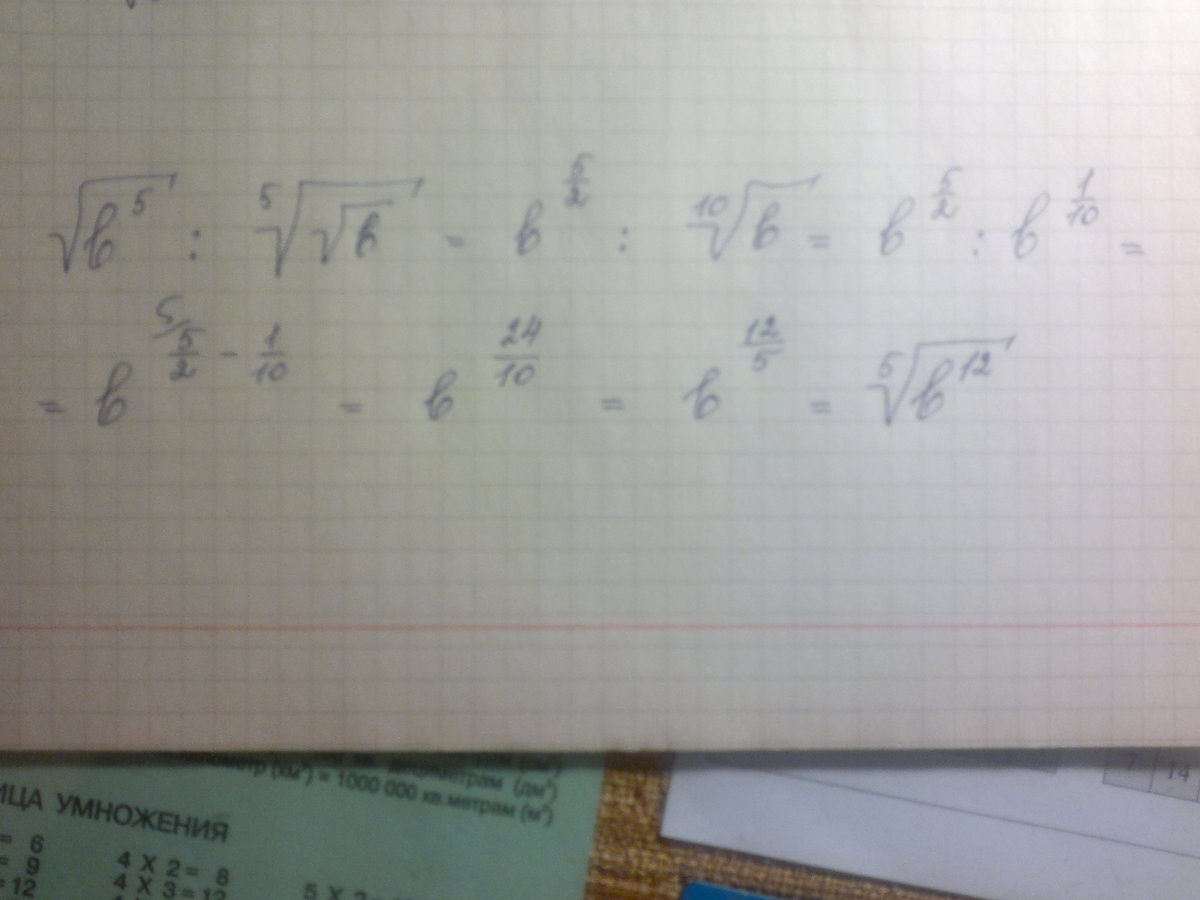 √b⁵ : ⁵√√b = b^(5/2) : ¹⁰√b = b^(5/2) : b^(1/10) =
= b^(⁵⁄5/2 - 1/10) = b^(24/10) = b^(12/5) = ⁵√b¹²
(км²) = 1000 000 кв.метрам (м²)
(дм²)
ИЦА УМНОЖЕНИЯ
= 6
= 9
= 12
4 X 2 = 8
4 X 3 = 12
5 X 2
7 14